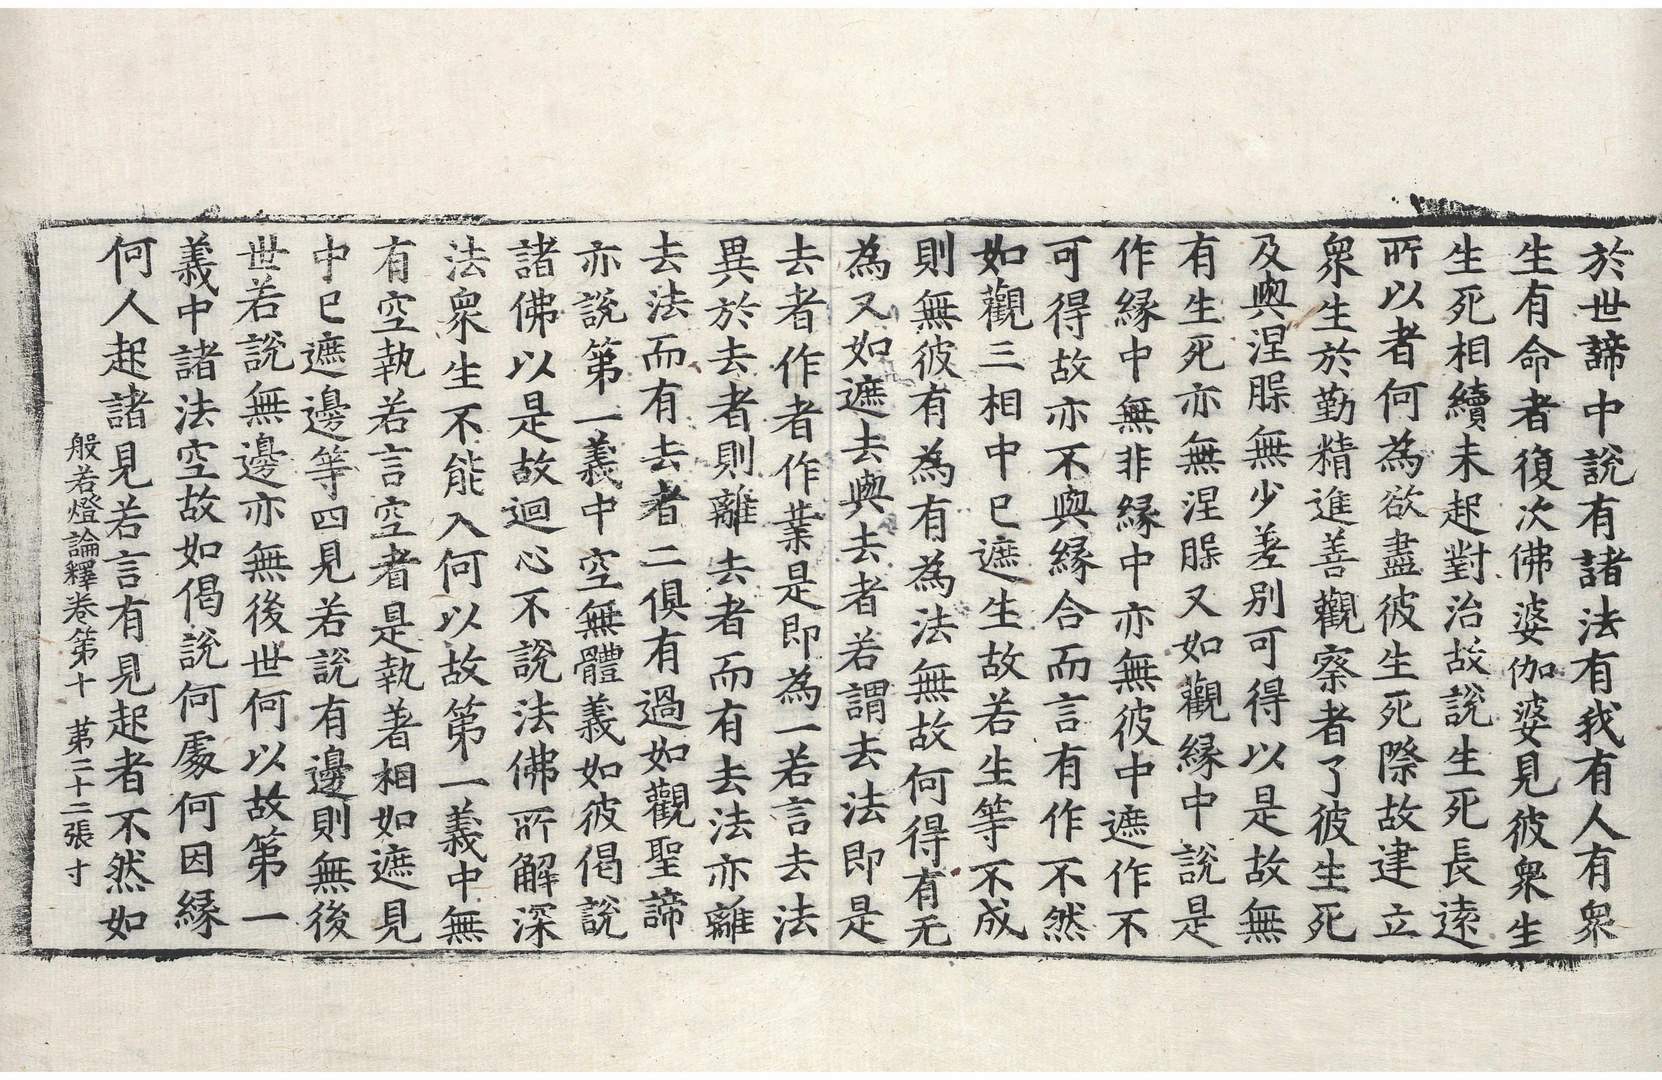 於世諦中說有諸法有我有人有衆
生有命者復次佛婆伽婆見彼衆生
生死相續未起對治故說生死長遠
所以者何為欲盡彼生死際故建立
衆生於勤精進善觀察者了彼生死
及與涅槃無少差別可得以是故無
有生死亦無涅槃又如觀緣中說是
作緣中無非緣中亦無彼中遮作不
可得故亦不與緣合而言有作不然
如觀三相中已遮生故若生等不成
則無彼有為有為法無故何得有无
為又如遮去與去者若謂去法即是
去者作者作業是即為一若言去法
異於去者則離去者而有去法亦離
去法而有去者二俱有過如觀聖諦
亦說第一義中空無體義如彼偈說
諸佛以是故迴心不說法佛所解深
法衆生不能入何以故第一義中無
有空執若言空者是執著相如遮見
中已遮邊等四見若說有邊則無後
世若說無邊亦無後世何以故第一
義中諸法空故如偈說何處何因緣
何人起諸見若言有見起者不然如
般若燈論釋卷第十　第三十二張　寸